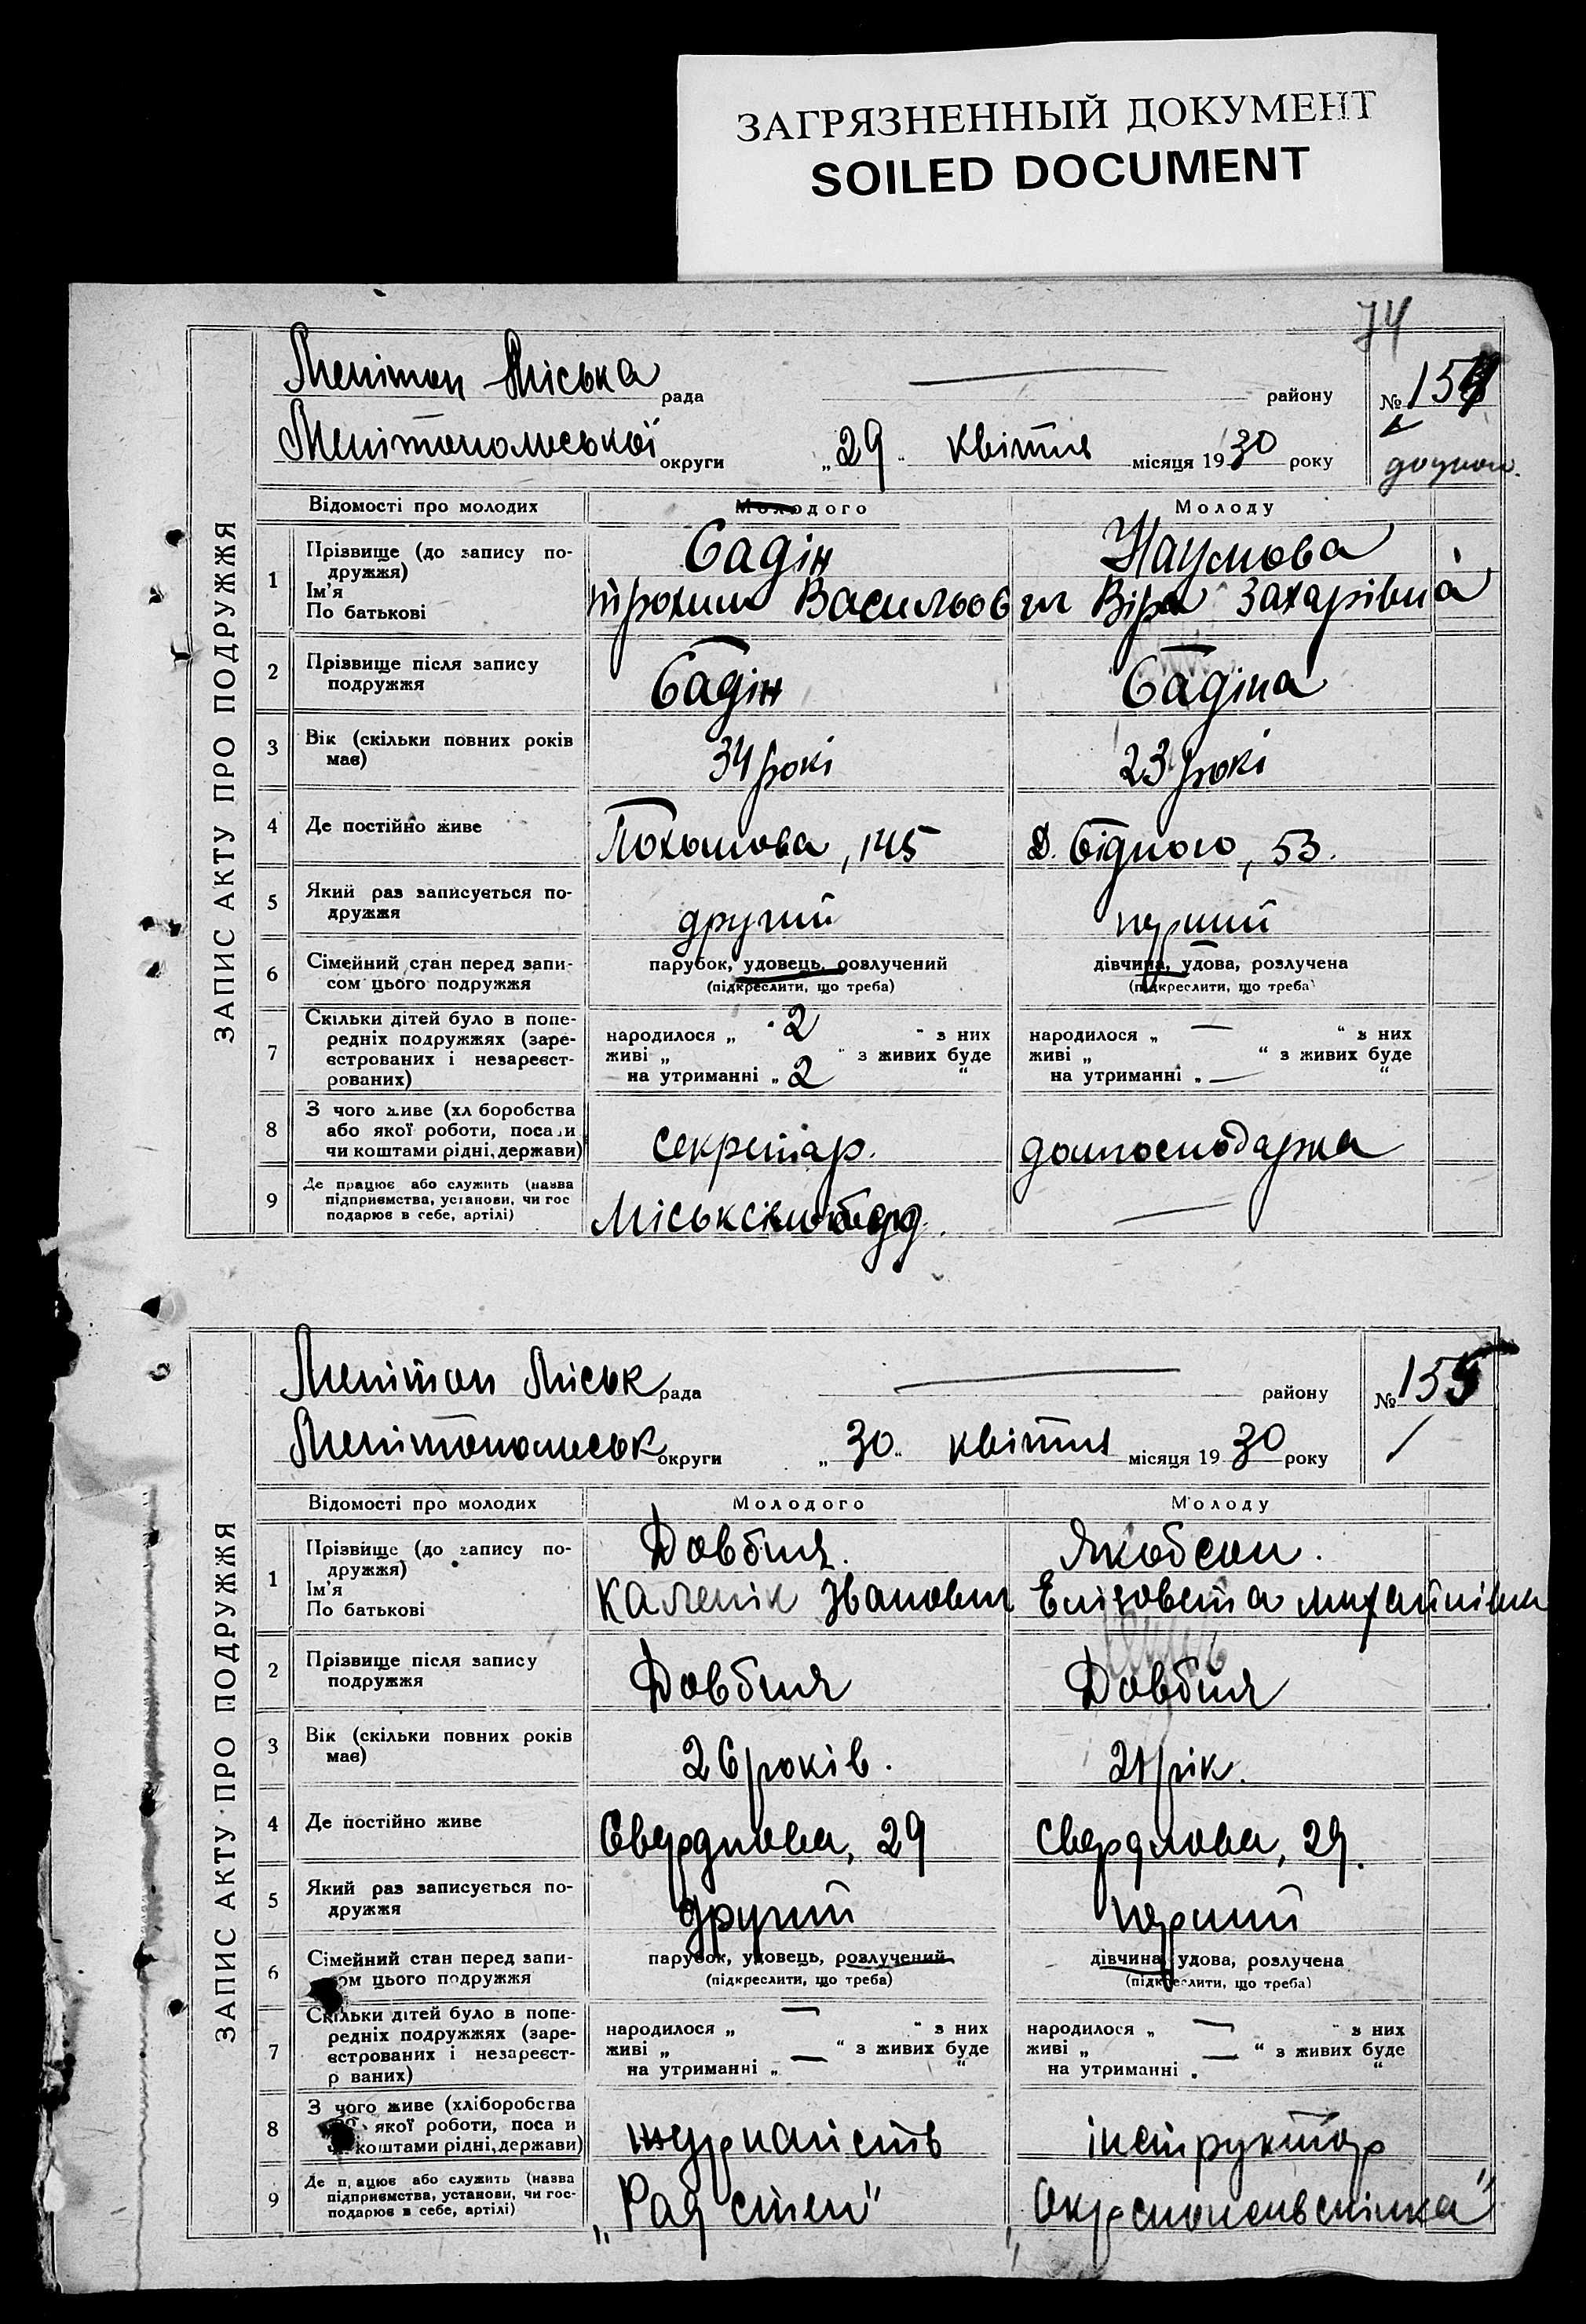 ЗАГРЯЗНЕННЫЙ ДОКУМЕНТ
SOILED DOCUMENT
74
ЗАПИС АКТУ ПРО ПОДРУЖЖЯ
Мелітоп Міська рада района району № 154
Мелітопольської округи „29“ квітня місяця 1930 року
Відомості про молодих Молодого Молоду
1 Прізвище (до запису по- Бадін Наумова
дружжя)
Ім'я Трохим Васильович Віра Захарівна
По батькові
2 Прізвище після запису Бадін Бадіна
подружжя
3 Вік (скільки повних років 34 рокі 23 рокі
має)
4 Де постійно живе 145 Д. Бідного, 53.
5 Який раз записується по- другий перший
дружжя
6 Сімейний стан перед запи- парубок, удовець, розлучений дівчина, удова, розлучена
сом цього подружжя (підкреслити, що треба) (підкреслити, що треба)
7 Скільки дітей було в попе-
редніх подружжях (заре- народилося „ 2 “ з них народилося „ — “ з них
єстрованих і незареєст- живі „ “ з живих буде живі „ “ з живих буде
рованих) на утриманні „ 2 “ на утриманні „ — “
8 З чого живе (хл боробства
або якої роботи, посади секретар. домгосподарка
чи коштами рідні, держави)
9 Де працює або служить (назва
підприємства, установи, чи гос —
подарює в себе, артілі)
ЗАПИС АКТУ ПРО ПОДРУЖЖЯ
Мелітоп Міськ рада району № 155
Мелітопольськ округи „30“ квітня місяця 1930 року
Відомості про молодих Молодого Молоду
1 Прізвище (до запису по- Довбня. Якобсон.
дружжя)
Ім'я Каленік Іванович Елізовета Михайлівна
По батькові
2 Прізвище після запису Довбня Довбня
подружжя
3 Вік (скільки повних років 26 років. 21 рік.
має)
4 Де постійно живе Свердлова, 29 Свердлова, 29.
5 Який раз записується по- другий перший
дружжя
6 Сімейний стан перед запи- парубок, удовець, розлучений дівчина, удова, розлучена
сом цього подружжя (підкреслити, що треба) (підкреслити, що треба)
7 Скільки дітей було в попе-
редніх подружжях (заре- народилося „ — “ з них народилося „ — “ з них
єстрованих і незареєст- живі „ “ з живих буде живі „ — “ з живих буде
р ваних) на утриманні „ — “ на утриманні „ “
8 З чого живе (хліборобства
якої роботи, поса и журналість інструктор
коштами рідні, держави)
9 Де п ацює або служить (назва
підприємства, установи, чи гос- „Рад степ"
подарює в себе, артілі)